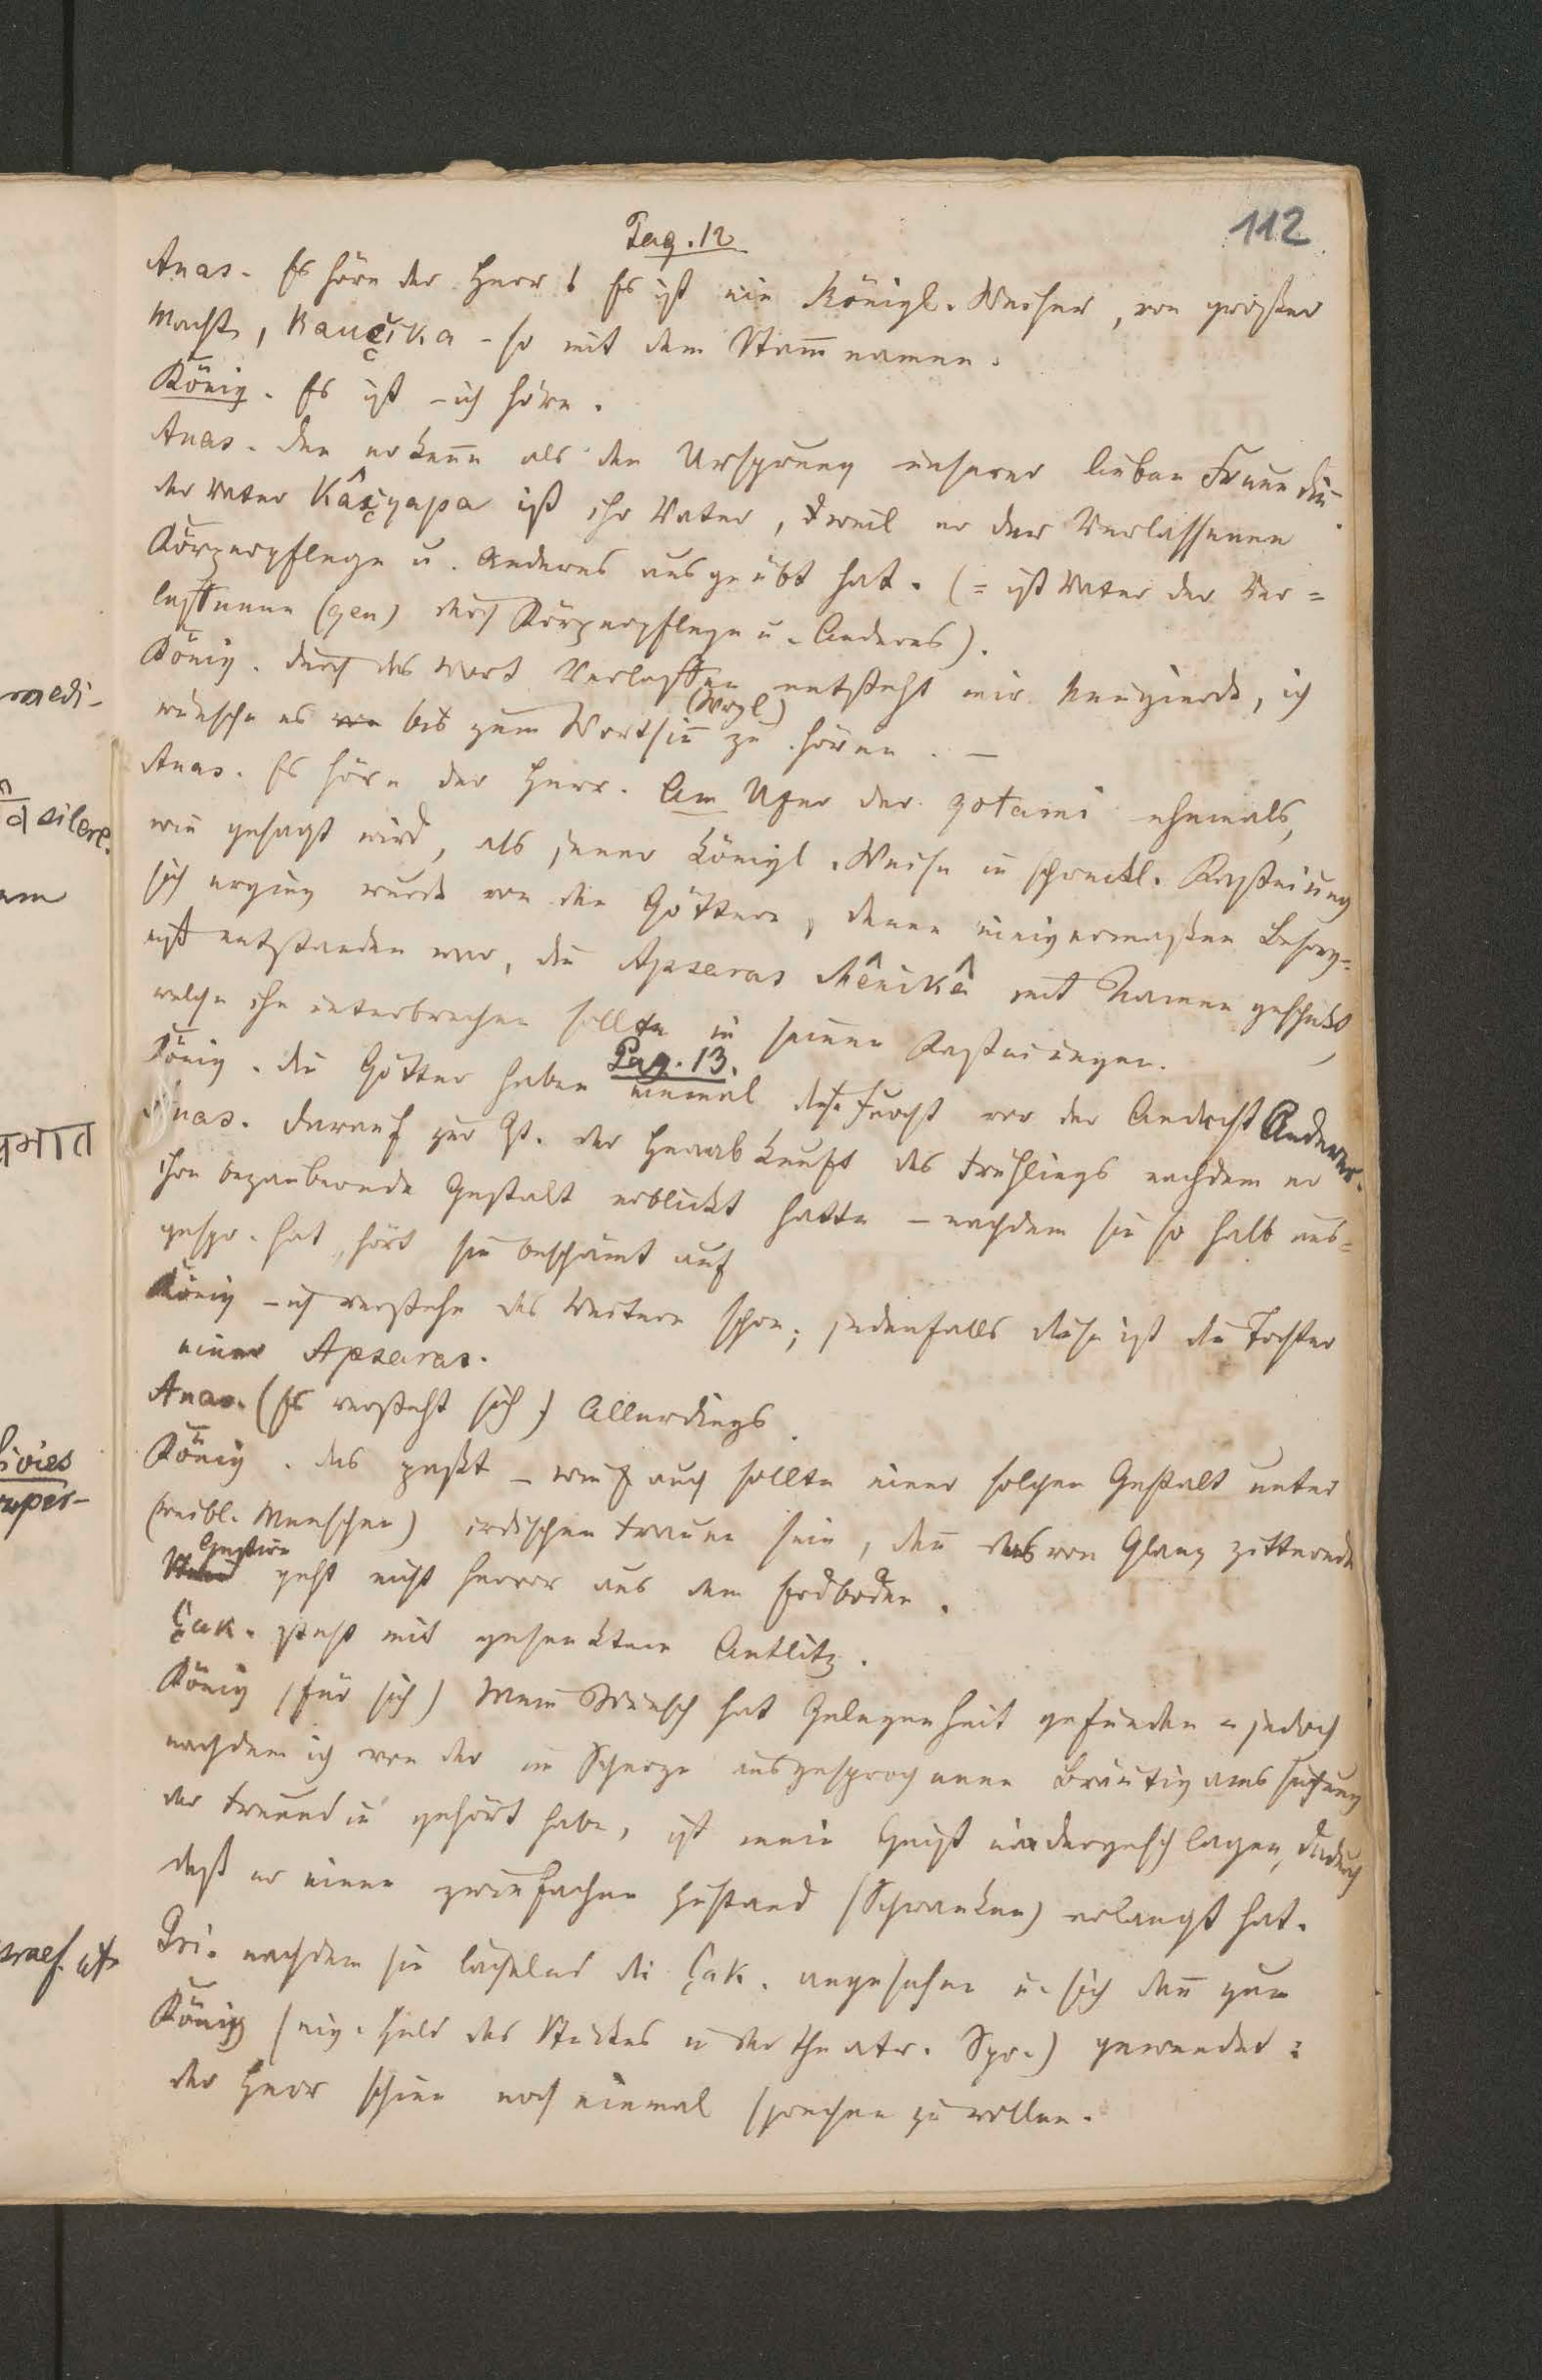 112
Pag. 12
Anas. Es höre der Herr! Es ist ein Königl. Weiser, von großer
Macht, Kauçika - so mit dem Stam̄namen.
König. Es ist - ich höre.
Anas. Den erken̄e als den Ursprung unserer lieben Freundin.
der Vater Kâçyapa ist ihr Vater, weil er der Verlassenen
Körperpflege u. Anderes ausgeübt hat. (= ist Vater der Ver=
lassenen (gen) durch Körperpflege u. Anderes).
König. durch das Wort Verlassen entsteht mir Neugierde, ich
wünsche es bis zum Wortsin̄ (Wrzl.) zu hören. —
Anas. Es höre der Herr. Am Ufer der gotami ehemals,
wie gesagt wird, als jener Königl. Weise in schreckl. Kasteiung
sich erging wurde von den Göttern, denen einigermaßen Besorg=
niß entstanden war, die Apsaras Mênikâ mit Namen geschickt,
welche ihn unterbrechen sollte in seinen Kasteiungen.
Pag. 13.
König. die Götter haben einmal diese Furcht vor der Andacht Anderer.
Anas. Darauf zur Zt. der Herabkunft des Frühlings nachdem er
ihre bezaubernde Gestalt erblickt hatte - nachdem sie so halb aus=
gespr. hat, hört sie beschämt auf
König - ich verstehe das Weitere schon; jedenfalls diese ist die Tochter
einer Apsaras.
Anas. (Es versteht sich) Allerdings.
König. das paßt - wie auch sollte einer solchen Gestalt unter
(weibl. Menschen) irdischen Frauen sein, den̄ das von Glanz zitternde
Gestirn geht nicht hervor aus dem Erdboden.
Çak. steht mit gesenktem Antlitz.
König (für sich) Mein Wunsch hat Gelegenheit gefunden - jedoch
nachdem ich von der im Scherze ausgesprochenen Bräutigams
der Freundin gehört habe, ist mein Geist niedergeschlagen, dadurch
daß er einen zweifachen Zustand (Schwanken) erlangt hat.
Pri. nachdem sie lächelnd die Çak. angesehen u. sich dan̄ zum
König (eig. Held des Stückes in der theatr. Spr.) gewendet:
der Herr schien noch einmal sprechen zu wollen.